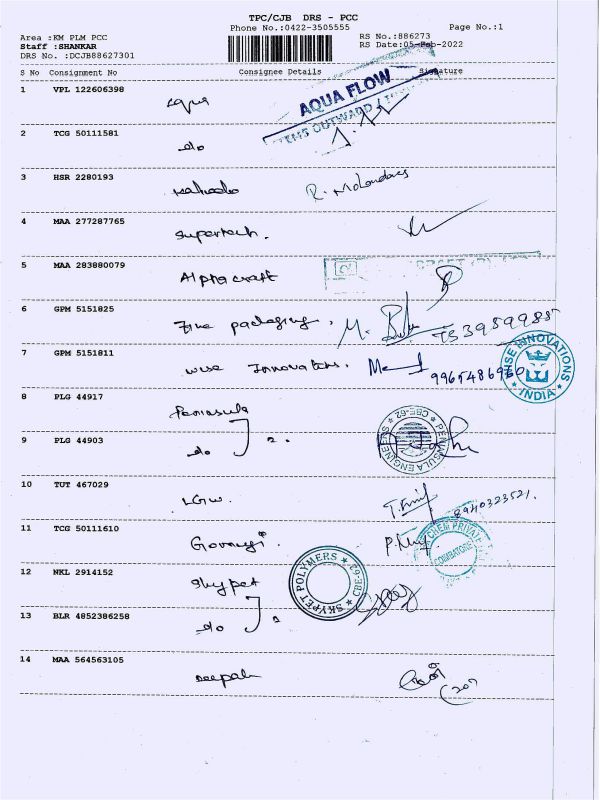 TPC/CJB DRS - PCC
Phone No.:0422-3505555
Page No.:1
Area :KM PLM PCC
RS No.:886273
Staff :SHANKAR
RS Date:05-Feb-2022
DRS No. :DCJB88627301
S No Consignment No Consignee Details Signature
1 VPL 122606398 Aqua
AQUA FLOW
2 TCG 50111581 do
3 HSR 2280193
4 MAA 277287765 Supertech.
5 MAA 283880079 Alpha craft
6 GPM 5151825 Fine packaging,
7 GPM 5151811 wise Innovations. 9965486960
WISE INNOVATIONS
INDIA
8 PLG 44917 Peninsula
9 PLG 44903 do 2.
PENINSULA ENGINEERS CBE-62
10 TUT 467029 LGW. 8940323521.
11 TCG 50111610
CHEM PRIVATE
COIMBATORE
12 NKL 2914152 Skypet
SKYPET POLYMERS
13 BLR 4852386258 do 2
14 MAA 564563105 Deepak